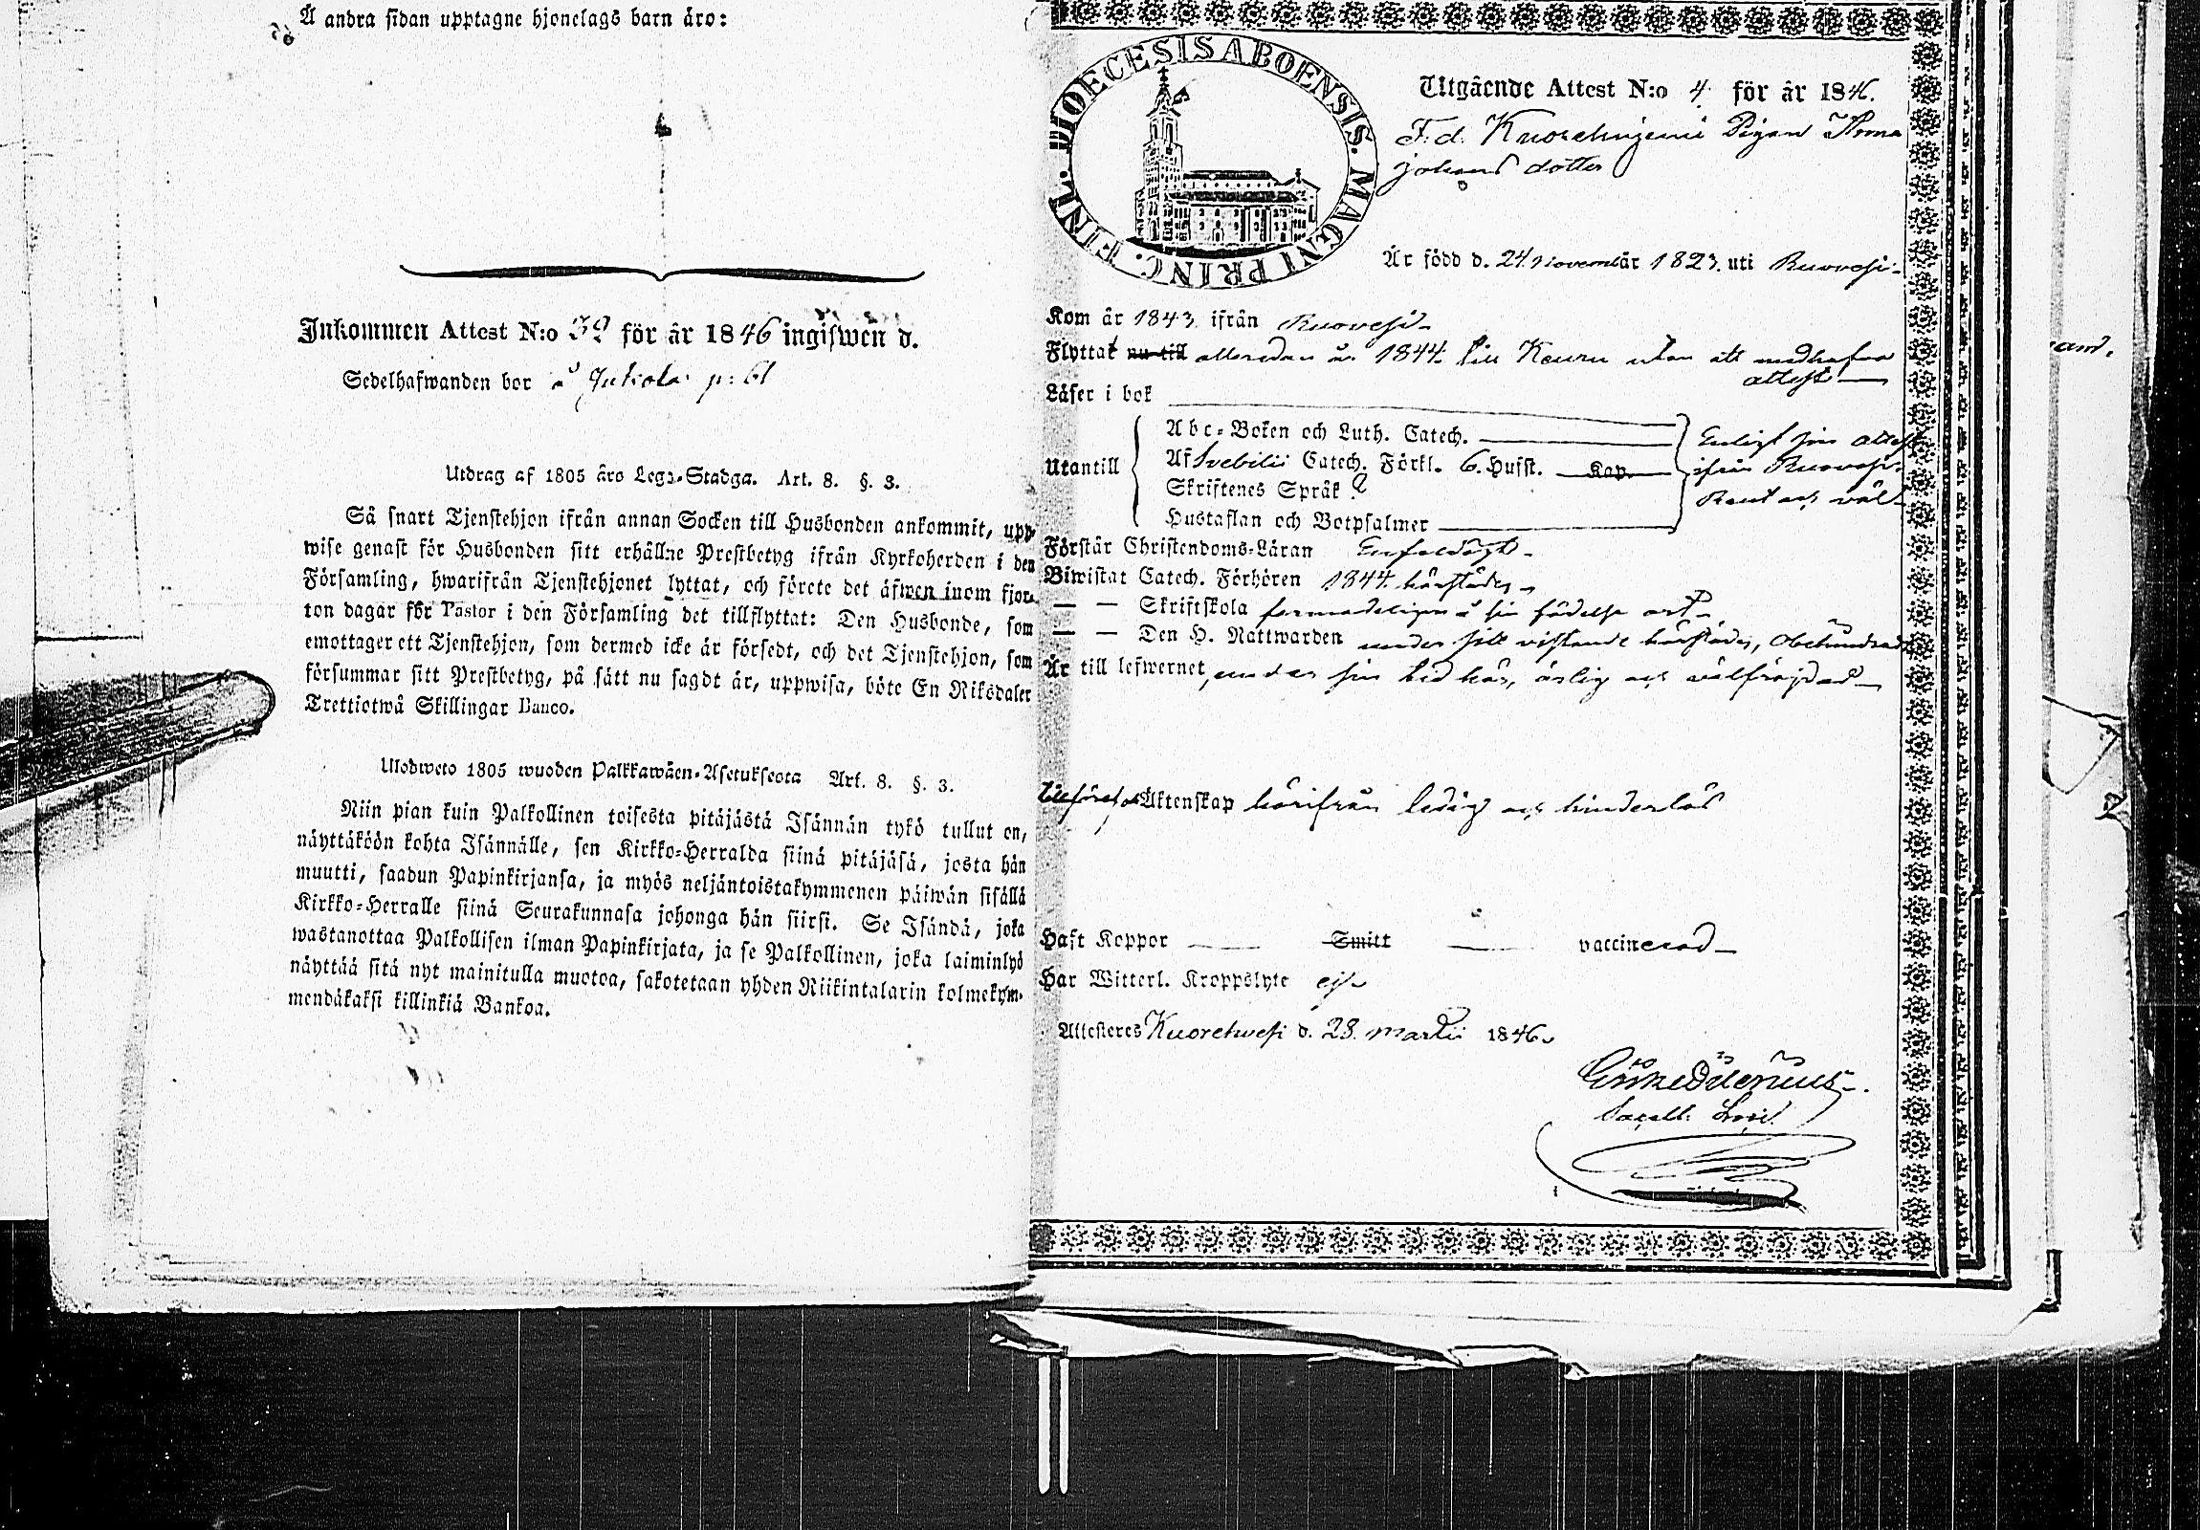 Å andra sidan upptagne hjonelags barn äro:
Inkommen Attest N:o 39 för år 1846 ingifwen d.
Sedelhafwanden bor å Jukola p: 61
Utdrag af 1805 års Lego-Stadga. Art. 8. §. 3.
Så snart Tjenstehjon ifrån annan Socken till Husbonden ankommit, upp-
wise genast för Husbonden sitt erhållne Prestbetyg ifrån Kyrkoherden i den
Församling, hwarifrån Tjenstehjonet flyttat, och förete det äfwen inom fjor-
ton dagar för Pastor i den Församling det tillflyttat: Den Husbonde, som
emottager ett Tjenstehjon, som dermed icke är försedt, och det Tjenstehjon, som
försummar sitt Prestbetyg, på sätt nu sagdt är, uppwisa, böte En Riksdaler
Trettiotwå Skillingar Banco.
Ulosweto 1805 wuoden Palkkawäen-Asetuksesta Art. 8. §. 3.
Niin pian kuin Palkollinen toisesta pitäjästä Isännän tykö tullut on,
näyttäköön kohta Isännälle, sen Kirkko-Herralda siinä pitäjäsä, josta hän
muutti, saadun Papinkirjansa, ja myös neljäntoistakymmenen päiwän sisällä
Kirkko-Herralle siinä Seurakunnasa johonga hän siirsi. Se Isändä, joka
wastanottaa Palkollisen ilman Papinkirjata, ja se Palkollinen, joka laiminlyö
näyttää sitä nyt mainitulla muotoa, sakotetaan yhden Riikintalarin kolmekym-
mendäkaksi killinkiä Bankoa.
DIOECESIS ABOENSIS. MAGNI PRINC. FINL.
Utgående Attest N:o 4 för år 1846.
F. d. Pigan Anna
Johans dotter
Är född d. 24 November år 1823. uti Ruovesi
Kom år 1843 ifrån Ruovesi
Flyttat nu till allaredan år 1844 till Keuru utan att medhafva
attest
Läser i bok
Utantill
Abc-Boken och Luth. Catech.
Af Svebilii Catech. Förkl. 6. Hufst. Kap.
Skriftenes Språk
Hustaflan och Botpsalmer
Enligt sin attest
ifrån Ruovesi
Rent och väl
Förstår Christendoms-Läran Enfaldigt
Biwistat Catech. Förhören 1844. härstädes
— — Skriftskola förmodeligen å sin födelse ort
— — Den H. Nattwarden under sitt vistande härstädes, obehindrad
Är till lefwernet, under sin tid här, ärlig och välfräjdad
Äktenskap härifrån ledig och hinderlös
Haft Koppor Smitt vaccinerad
Har Witterl. Kroppslyte ej
Attesteres Kuorehwesi d. 28. Martii 1846.
Sacell.